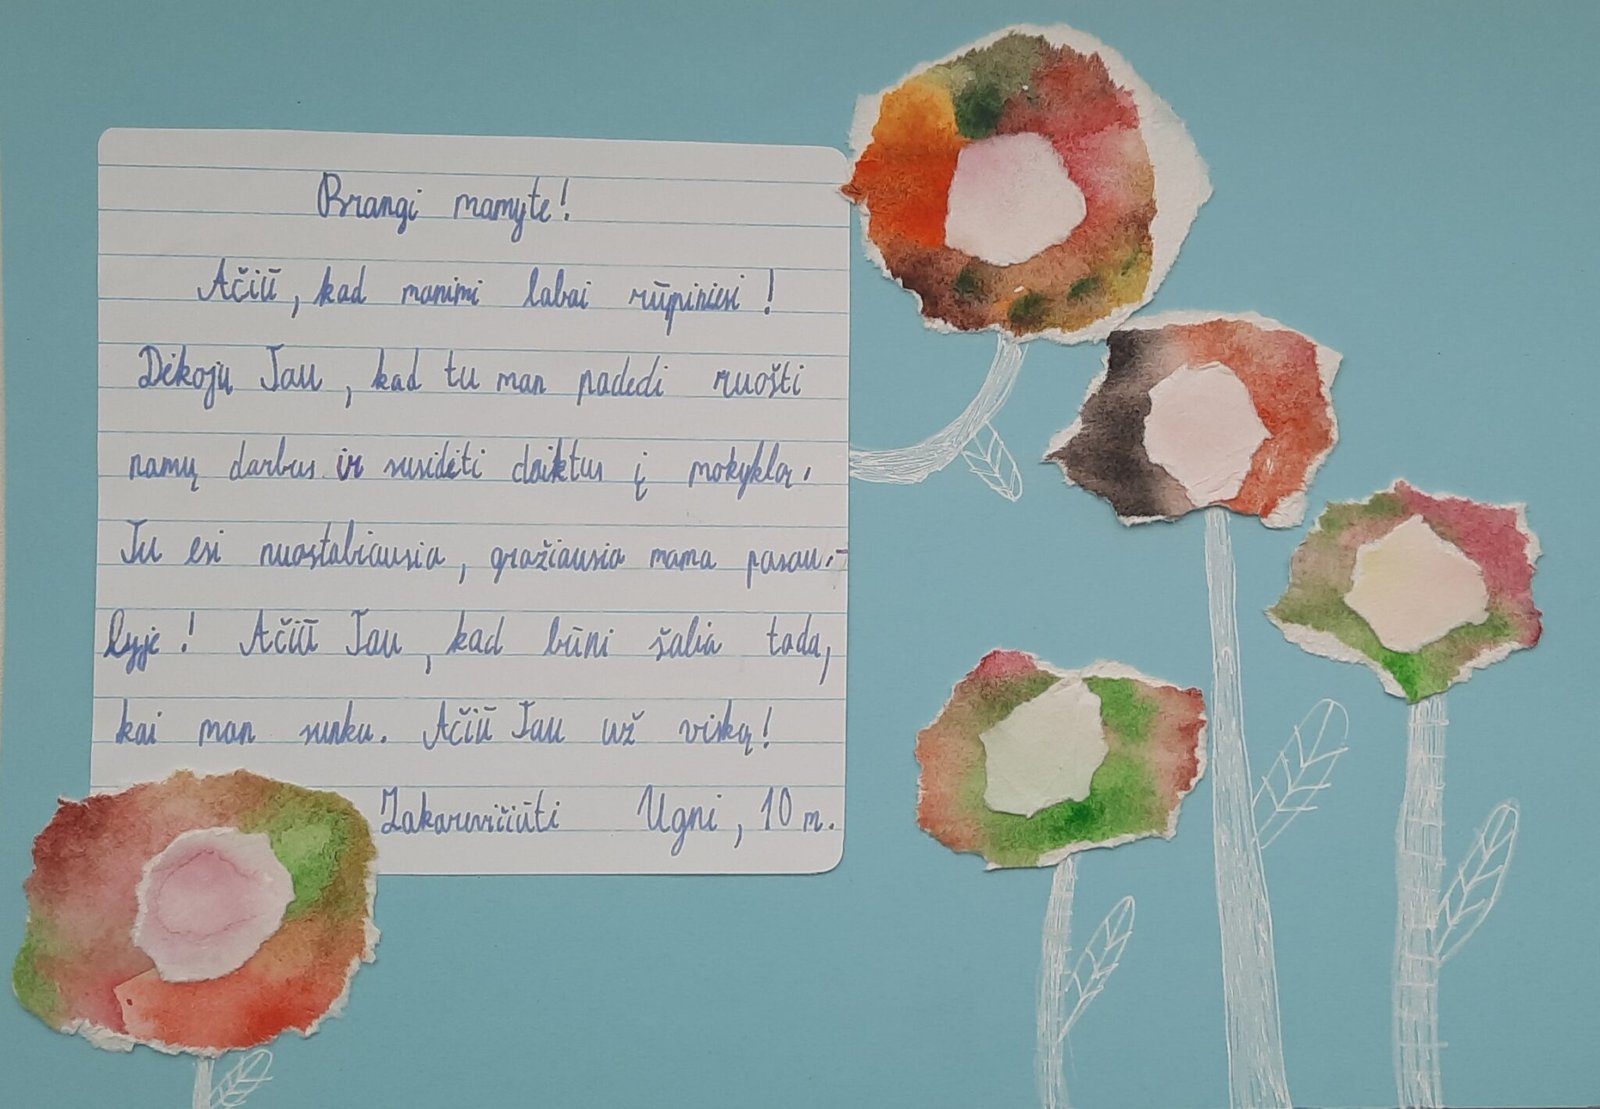 Brangi mamyte!
Ačiū, kad manimi labai rūpiniesi!
Dėkoju Tau, kad tu man padedi ruošti
namų darbus ir susidėti daiktus į mokyklą.
Tu esi nuostabiausia, gražiausia mama pasau-
lyje! Ačiū Tau, kad būni šalia tada,
kai man sunku. Ačiū Tau už viską!
Ugnė, 10 m.